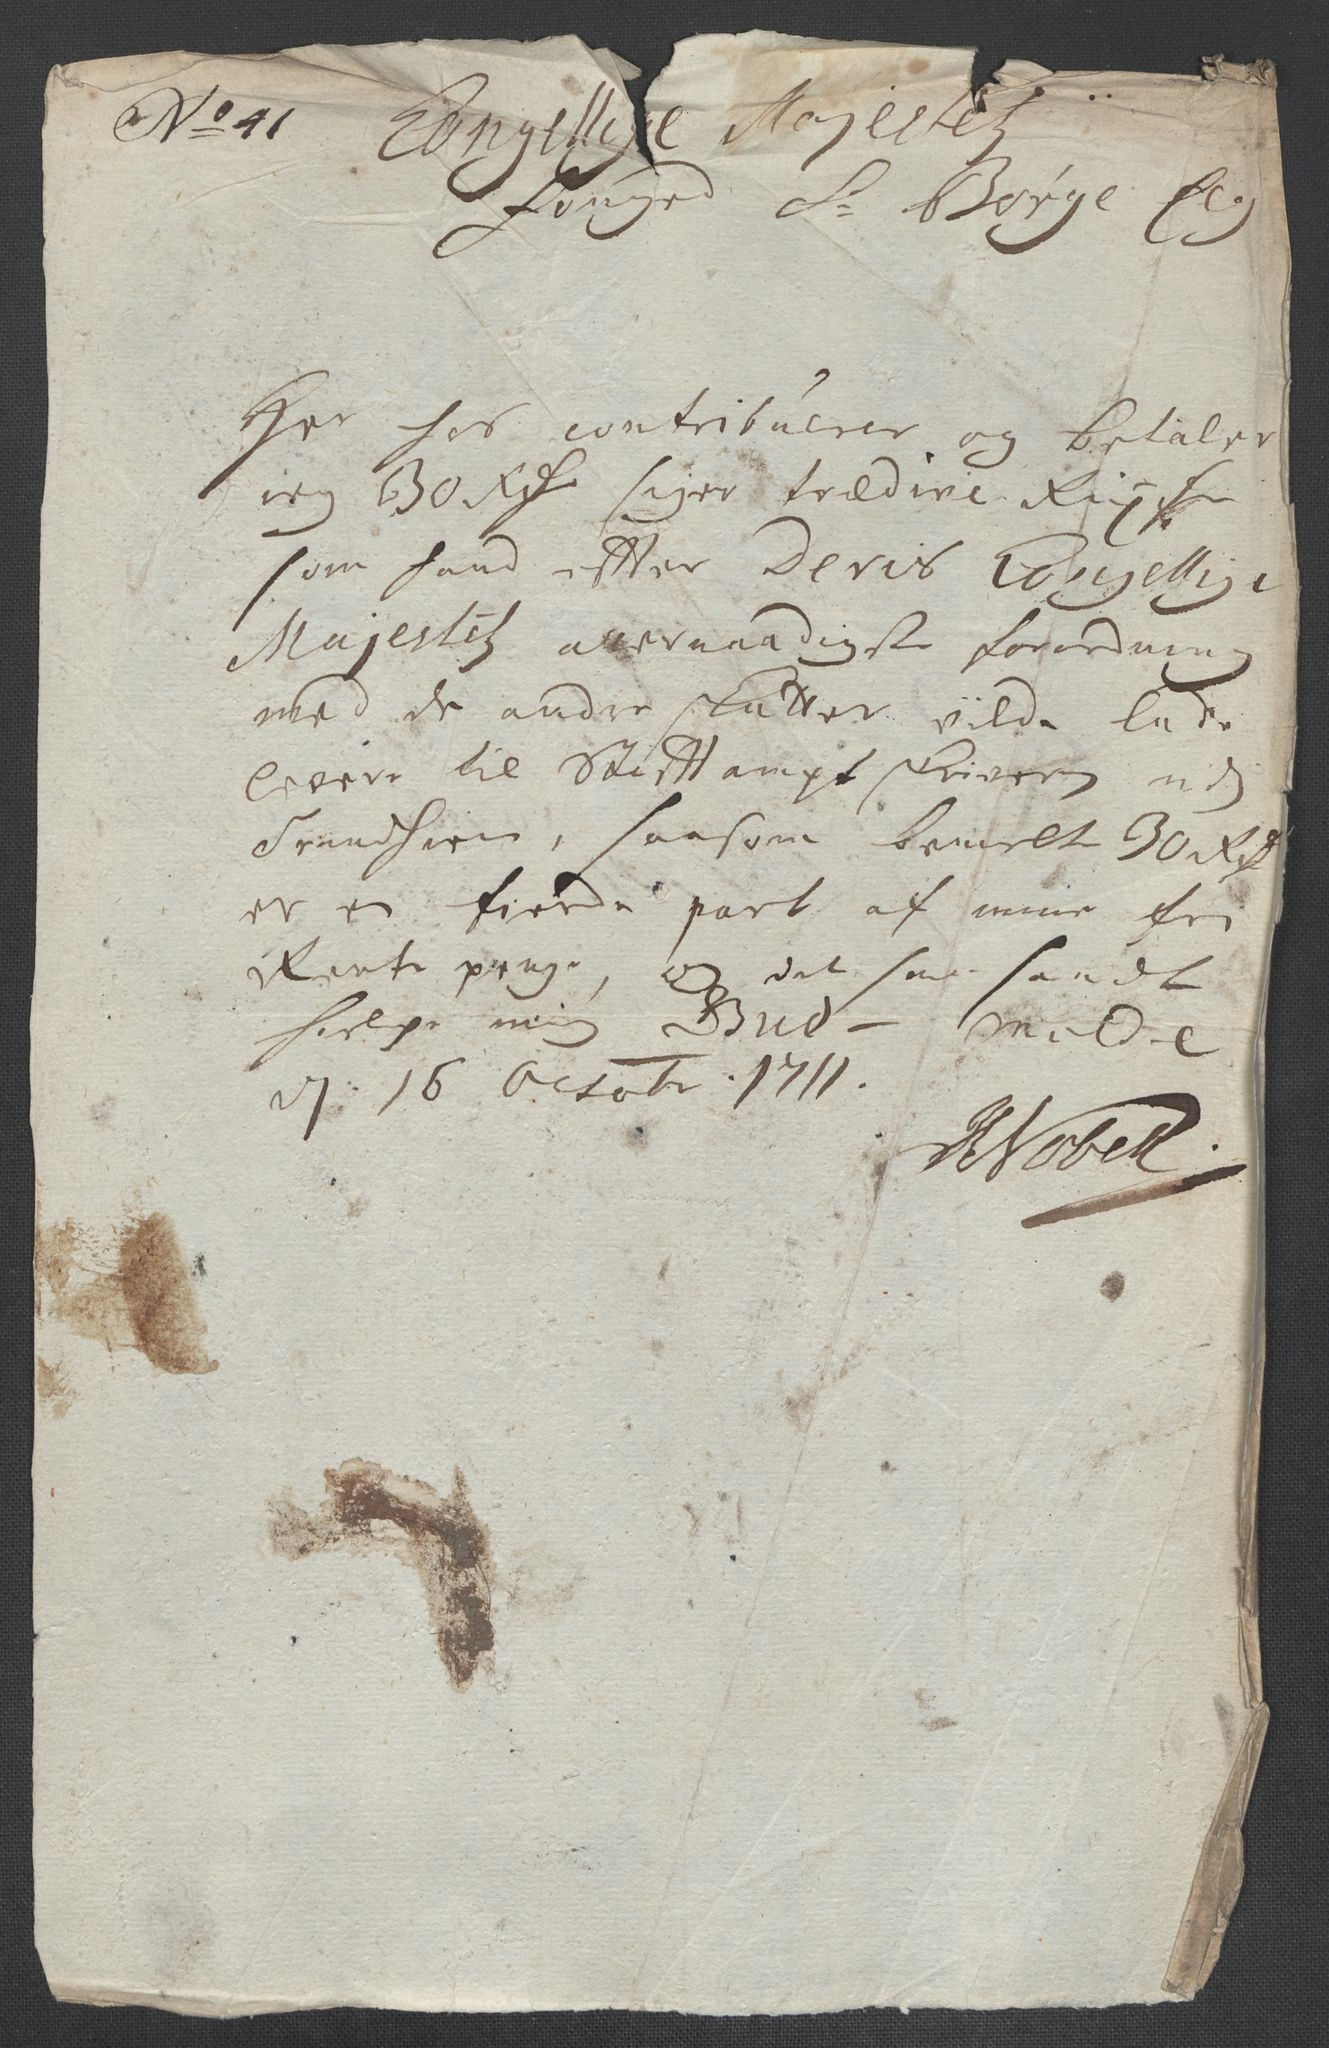 No 41 Kongellige Majestetz
fouged Sr Børge Eeg
Her hos contribuerer og betaler
ieg 30 Rdr siger trædive Rixdr
som hand efter Deris Kongellige
Majestetz allernaadigste forordning
med de andre skatter vilde lade
levere til Stiftamptskriveren udj
Trundhiem, saasom bemelte 30 Rdr
er en fierde part af mine fri
Rente penge, og det saa sandt
hielpe mig Gud - Molde
dj 16 Octobr. 1711.
Nobell